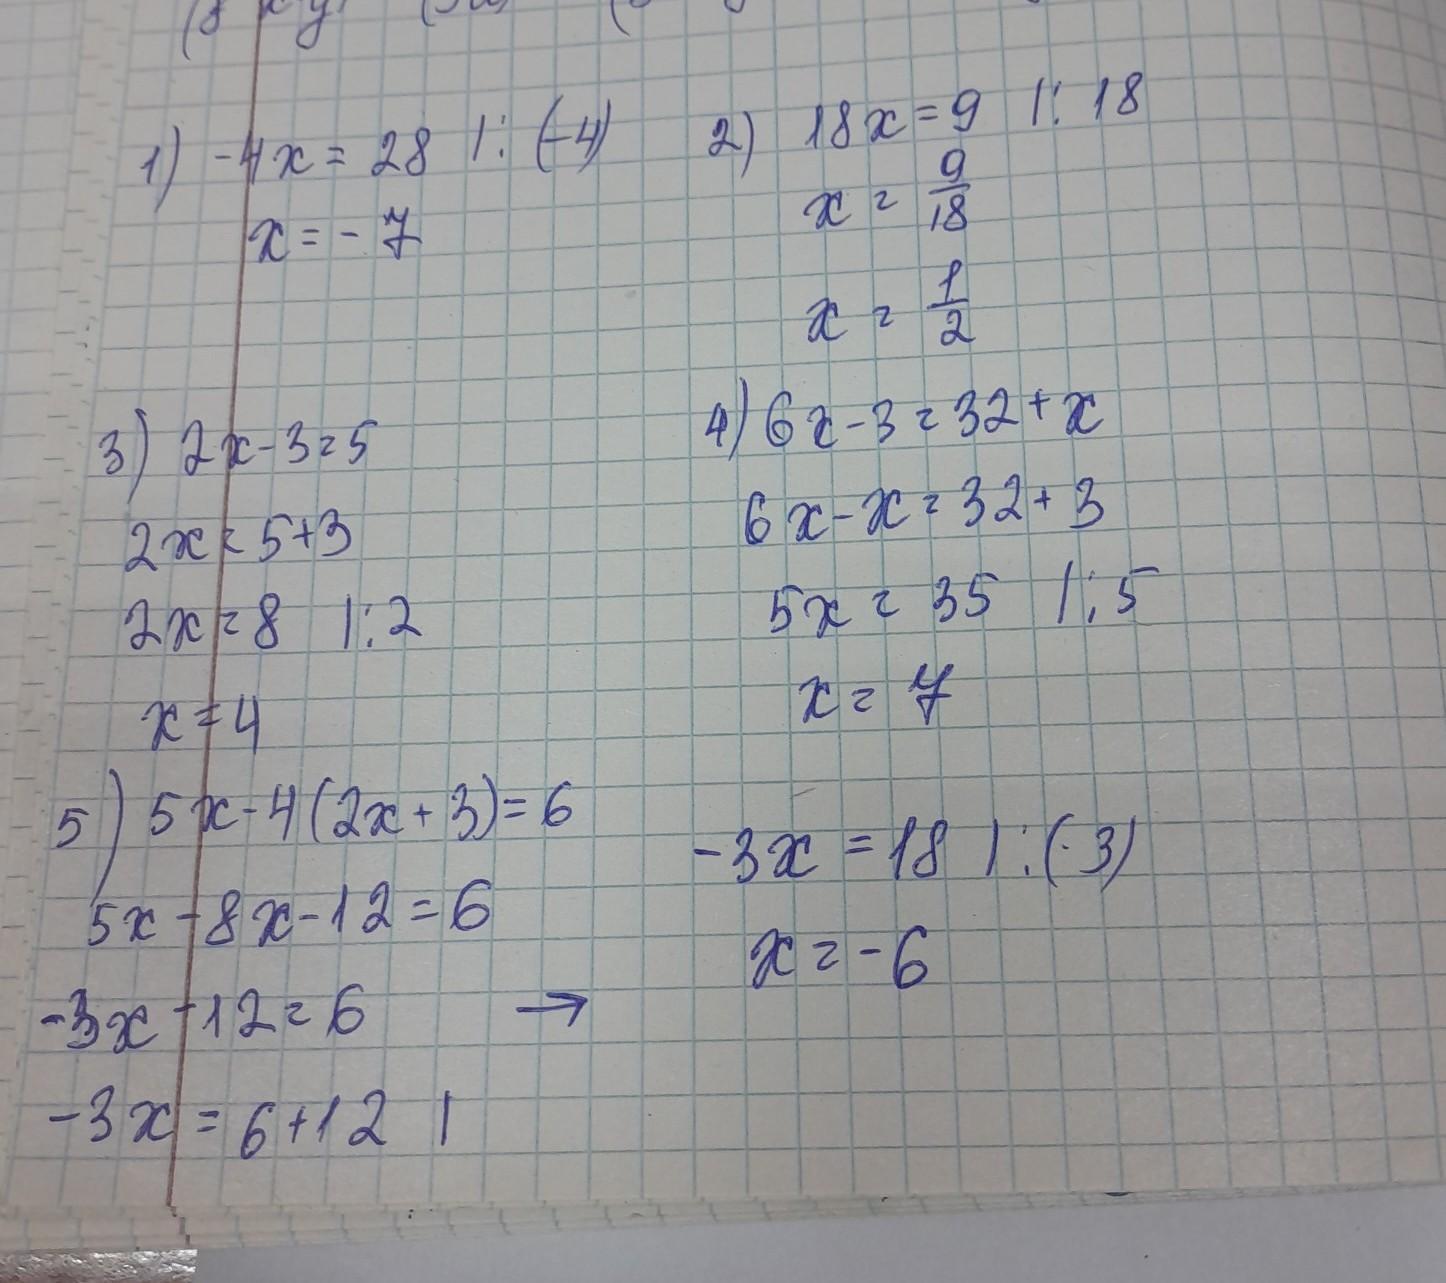 1) -4x = 28 |: (-4)
x = -7
2) 18x = 9 |: 18
x = 9/18
x = 1/2
3) 2x-3=5
2x = 5+3
2x = 8 |: 2
x = 4
4) 6x-3=32+x
6x-x=32+3
5x = 35 |: 5
x = 7
5) 5x-4(2x+3)=6
5x-8x-12=6
-3x-12=6 →
-3x = 6+12 |
-3x = 18 |: (-3)
x = -6